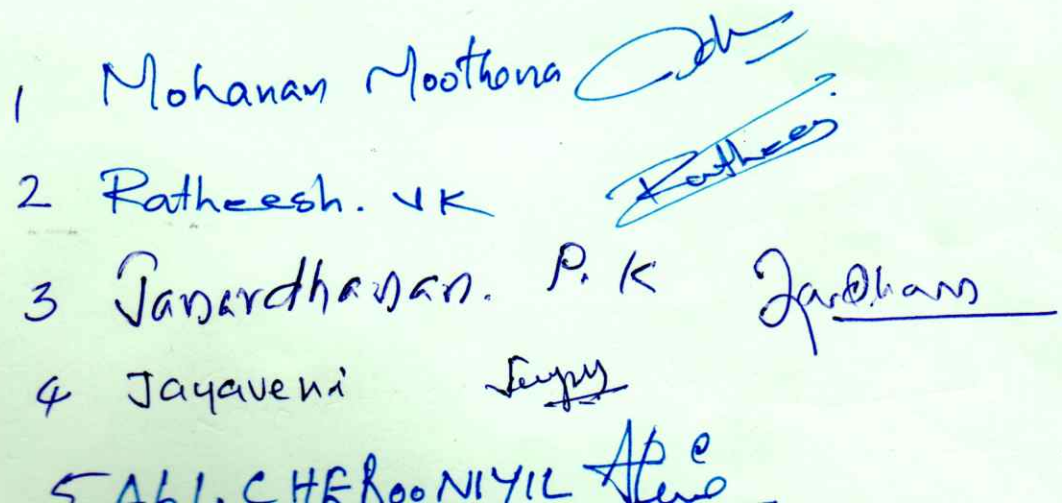 1 Mohanan Moothona
2 Ratheesh. VK Rathees
3 Janardhanan. P. K
4 Jayaveni
5 Abl. CHEROONIYIL